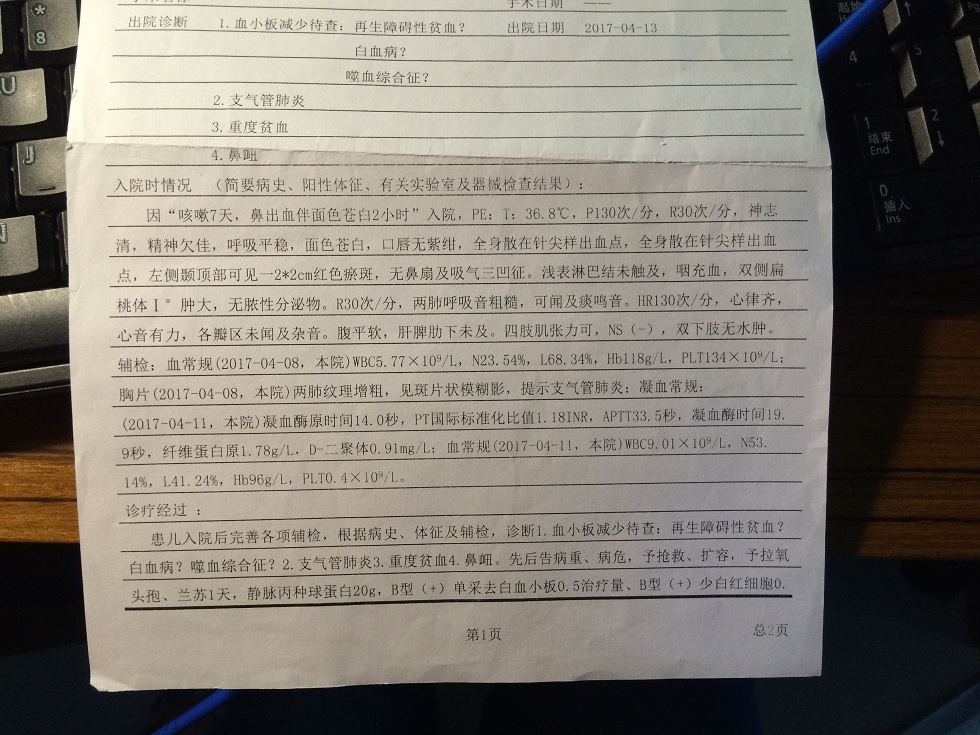 手术日期 ——
出院诊断 1.血小板减少待查：再生障碍性贫血？ 出院日期 2017-04-13
白血病？
噬血综合征？
2.支气管肺炎
3.重度贫血
4.鼻衄
入院时情况 （简要病史、阳性体征、有关实验室及器械检查结果）：
因“咳嗽7天，鼻出血伴面色苍白2小时”入院，PE：T：36.8℃，P130次/分，R30次/分，神志
清，精神欠佳，呼吸平稳，面色苍白，口唇无紫绀，全身散在针尖样出血点，全身散在针尖样出血
点，左侧颞顶部可见一2*2cm红色瘀斑，无鼻扇及吸气三凹征。浅表淋巴结未触及，咽充血，双侧扁
桃体Ⅰ°肿大，无脓性分泌物。R30次/分，两肺呼吸音粗糙，可闻及痰鸣音。HR130次/分，心律齐，
心音有力，各瓣区未闻及杂音。腹平软，肝脾肋下未及。四肢肌张力可，NS（-），双下肢无水肿。
辅检：血常规(2017-04-08，本院)WBC5.77×10⁹/L，N23.54%，L68.34%，Hb118g/L，PLT134×10⁹/L；
胸片(2017-04-08，本院)两肺纹理增粗，见斑片状模糊影，提示支气管肺炎；凝血常规：
(2017-04-11，本院)凝血酶原时间14.0秒，PT国际标准化比值1.18INR，APTT33.5秒，凝血酶时间19.
9秒，纤维蛋白原1.78g/L，D-二聚体0.91mg/L；血常规(2017-04-11，本院)WBC9.01×10⁹/L，N53.
14%，L41.24%，Hb96g/L，PLT0.4×10⁹/L。
诊疗经过：
患儿入院后完善各项辅检，根据病史、体征及辅检，诊断1.血小板减少待查：再生障碍性贫血？
白血病？噬血综合征？2.支气管肺炎3.重度贫血4.鼻衄。先后告病重、病危，予抢救、扩容，予拉氧
头孢、兰苏1天，静脉丙种球蛋白20g，B型（+）单采去白血小板0.5治疗量、B型（+）少白红细胞0.
第1页
总2页
*
8
U
J
起始
4
5
1
结束
End
2
↓
0
插入
Ins